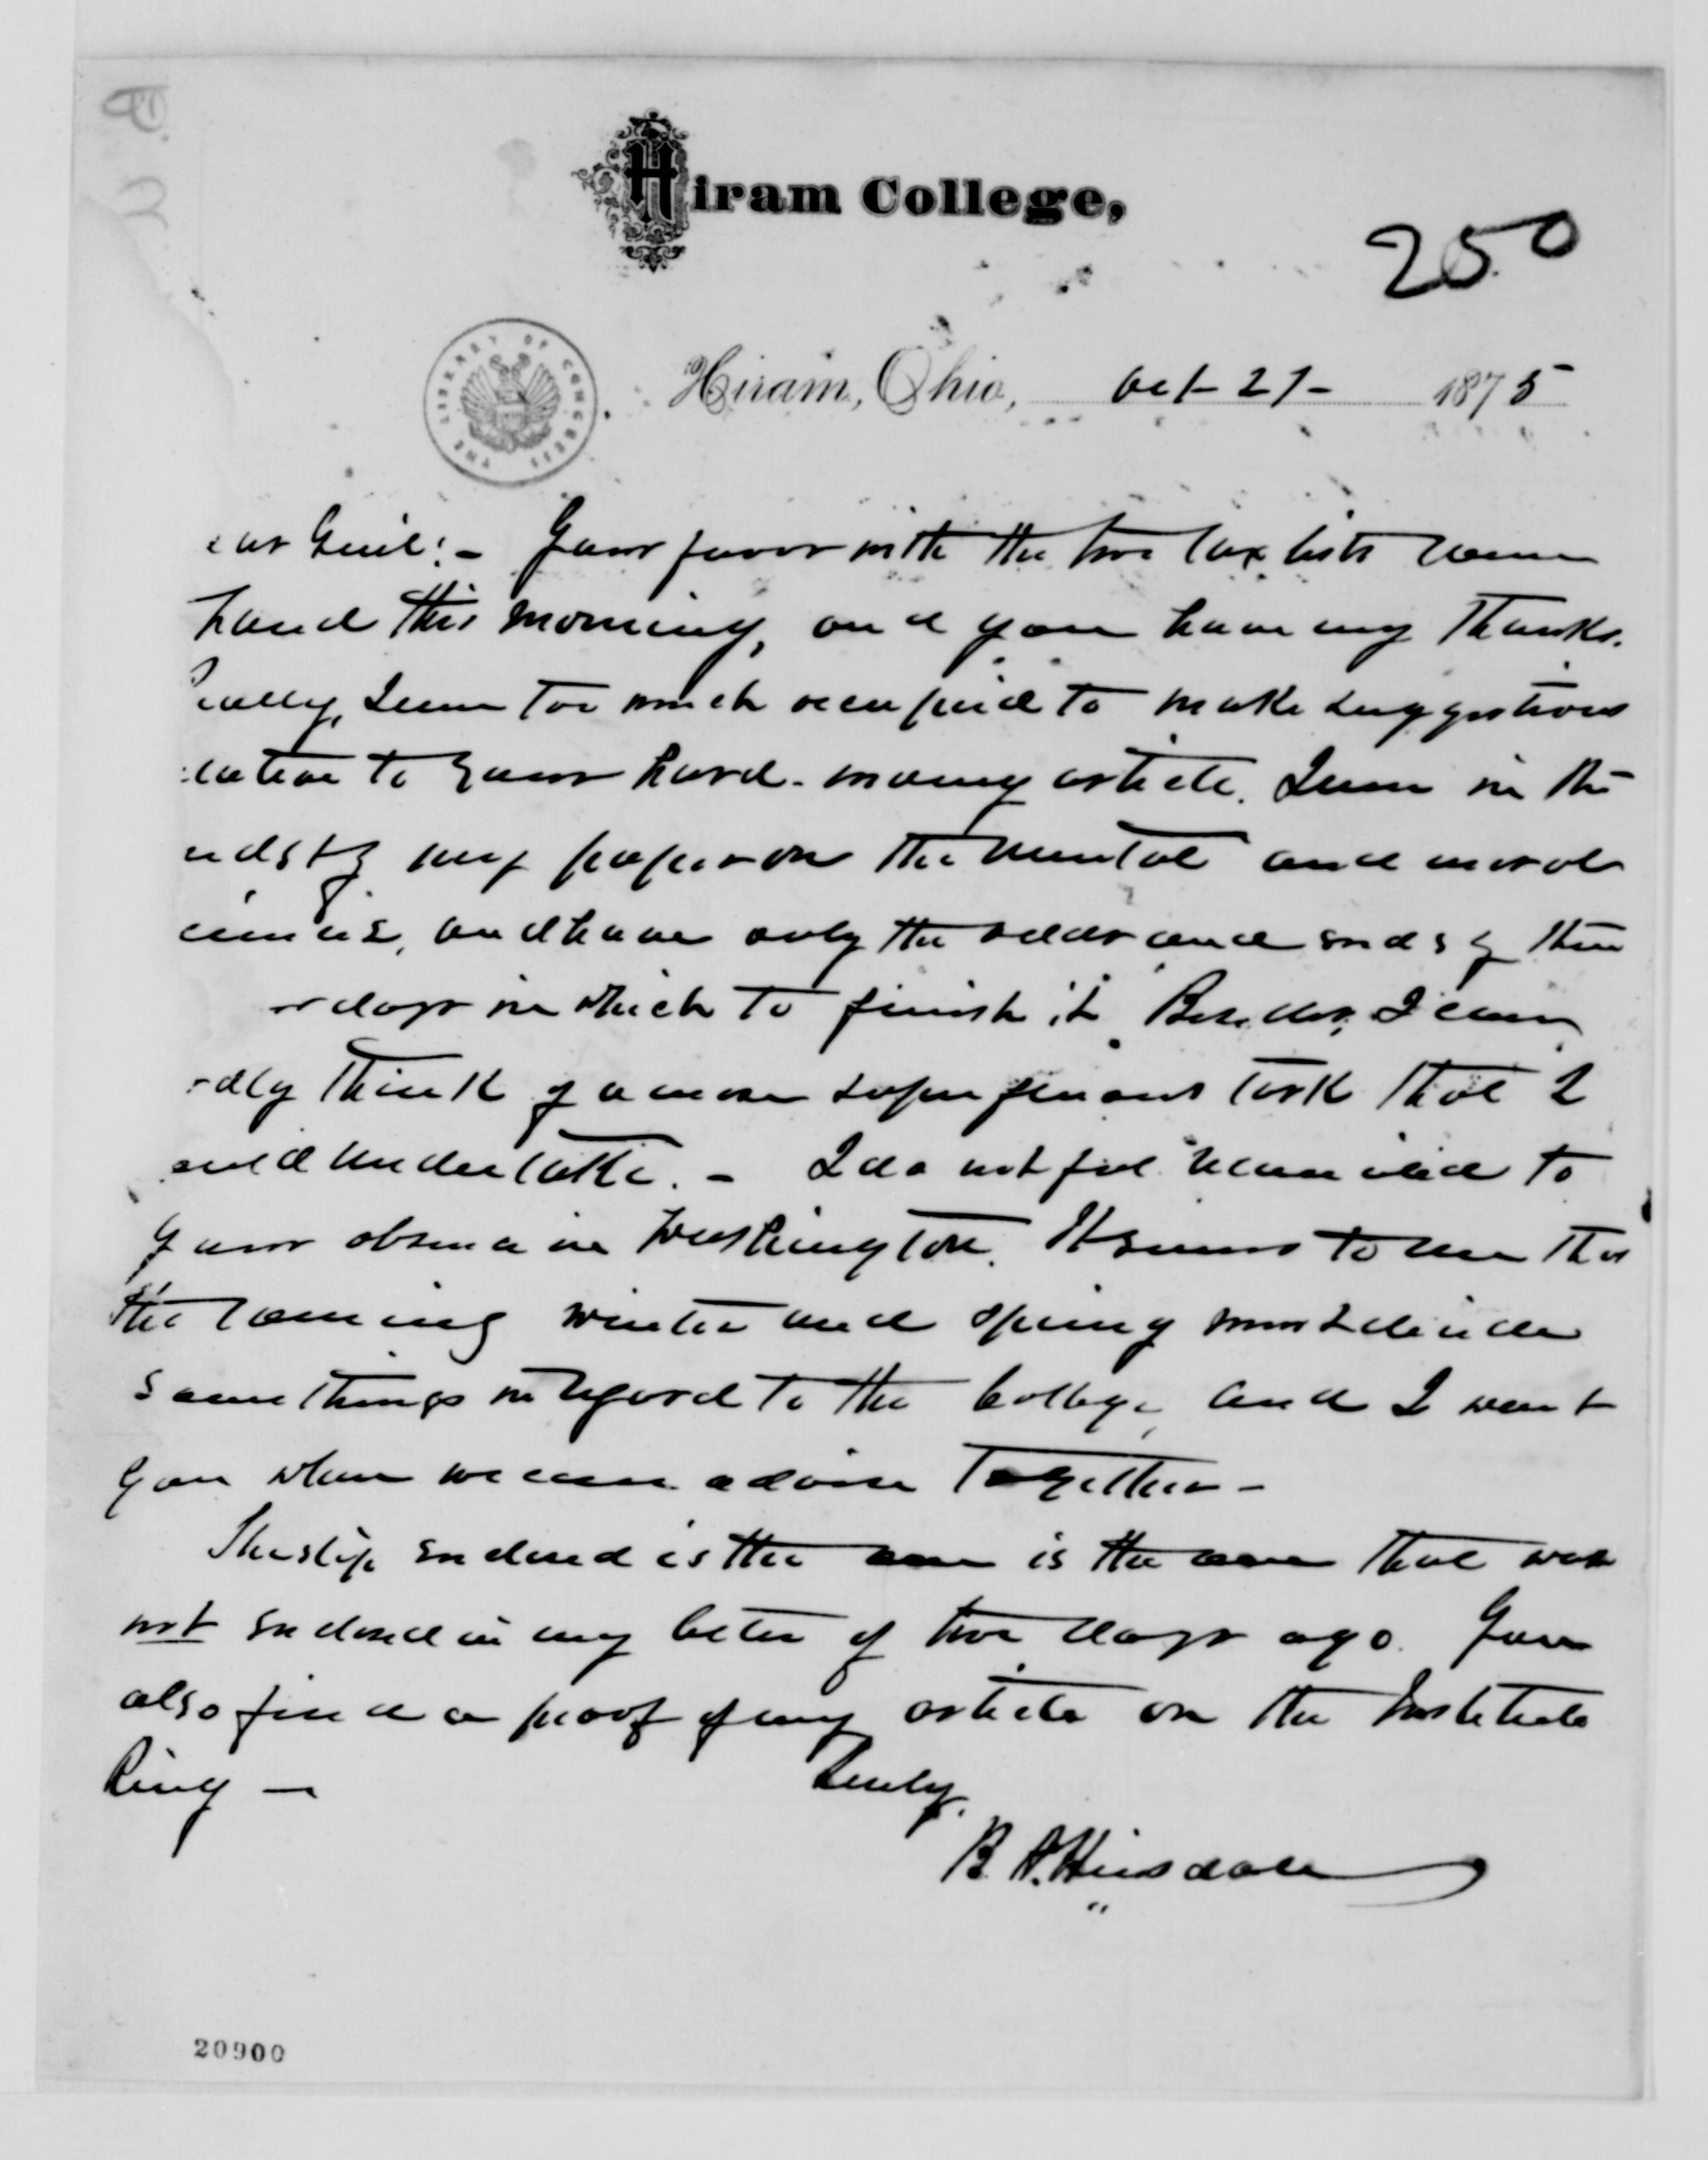 Hiram College,
250
THE LIBRARY OF CONGRESS
Hiram, Ohio, Oct 21- 1875
ear Genl:- Your favor with the two tax lists came
hand this morning, and you have my thanks.
eally, I am too much occupied to make suggestions
lative to your hard-money article. I am in the
idst of my paper on the mental and moral
ciences, and have only the odds and ends of three
r days in which to finish it. Besides, I can
rdly think of a more superfluous task that I
ould undertake. - I do not feel reconciled to
your absence in Washington. It seems to me that
the coming winter and spring must decide
some things in regard to the College, and I want
you where we can advise together -
The slip enclosed is the one is the one that was
not enclosed in my letter of two days ago. You
also find a proof of my article on the Institute
Ring -
Truly,
B. A. Hinsdale
20900